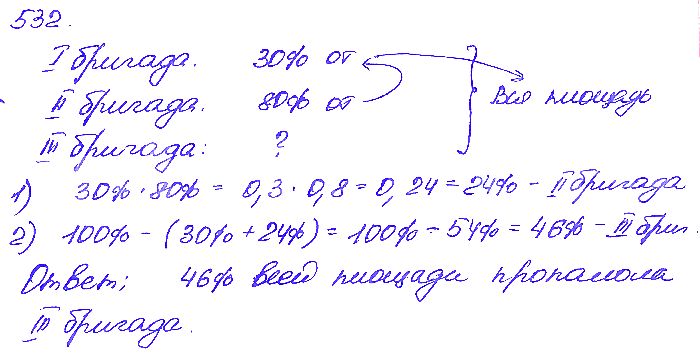 532.
I бригада. 30% от
II бригада. 80% от } Вся площадь
III бригада: ?
1) 30% · 80% = 0,3 · 0,8 = 0,24 = 24% - II бригада
2) 100% - (30% + 24%) = 100% - 54% = 46% - III бриг.
Ответ: 46% всей площади прополола
III бригада.